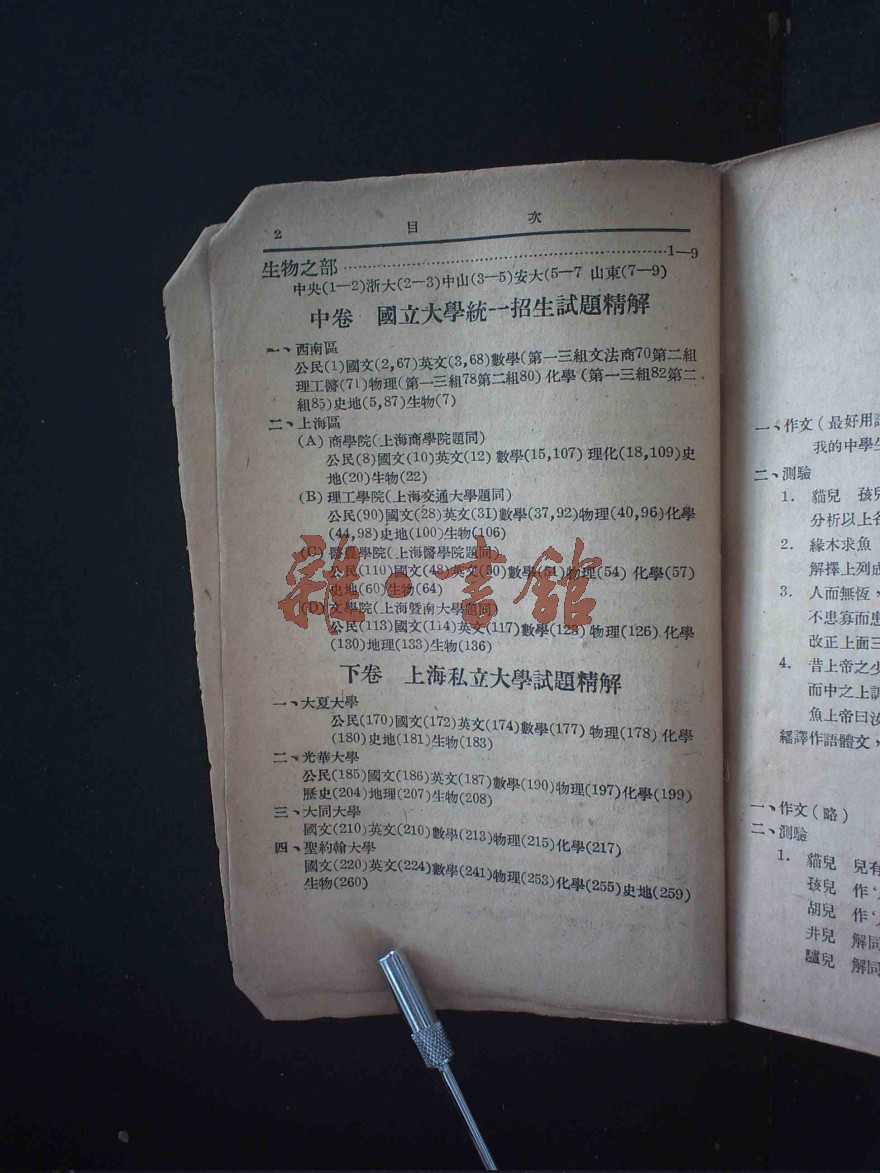 2 目 次
生物之部 1—9
中央(1—2)浙大(2—3)中山(3—5)安大(5—7 山東(7—9)
中卷 國立大學統一招生試題精解
一、西南區
公民(1)國文(2,67)英文(3,68)數學(第一三組文法商70第二組
理工醫(71)物理(第一三組78第二組80)化學(第一三組82第二
組85)史地(5,87)生物(7)
二、上海區
(A) 商學院(上海商學院題同)
公民(8)國文(10)英文(12) 數學(15,107) 理化(18,109)史
地(20)生物(22)
(B) 理工學院(上海交通大學題同)
公民(90)國文(28)英文(31)數學(37,92)物理(40,96)化學
(44,98)史地(100)生物(106)
(C) 醫農學院(上海醫學院題同)
公民(110)國文(48)英文(50)數學(51)物理(54) 化學(57)
史地(60)生物(64)
(D) 文學院(上海暨南大學題同)
公民(113)國文(114)英文(117)數學(123) 物理(126) 化學
(130)地理(133)生物(136)
下卷 上海私立大學試題精解
一、大夏大學
公民(170)國文(172)英文(174)數學(177) 物理(178) 化學
(180)史地(181)生物(183)
二、光華大學
公民(185)國文(186)英文(187)數學(190)物理(197)化學(199)
歷史(204)地理(207)生物(208)
三、大同大學
國文(210)英文(210)數學(213)物理(215)化學(217)
四、聖約翰大學
國文(220)英文(224)數學(241)物理(253)化學(255)史地(259)
生物(260)
雜·書館
一、作文(最好用
我的中學
二、測驗
1. 貓兒 孩
分析以上
2. 緣木求魚
解釋上列
3. 人而無恆，
不患寡而
改正上面三
4. 昔上帝之
而中之上
魚上帝曰
繙譯作語體文，
一、作文(略)
二、測驗
1. 貓兒 兒
孩兒 作
胡兒 作
井兒 解同
驢兒 解同